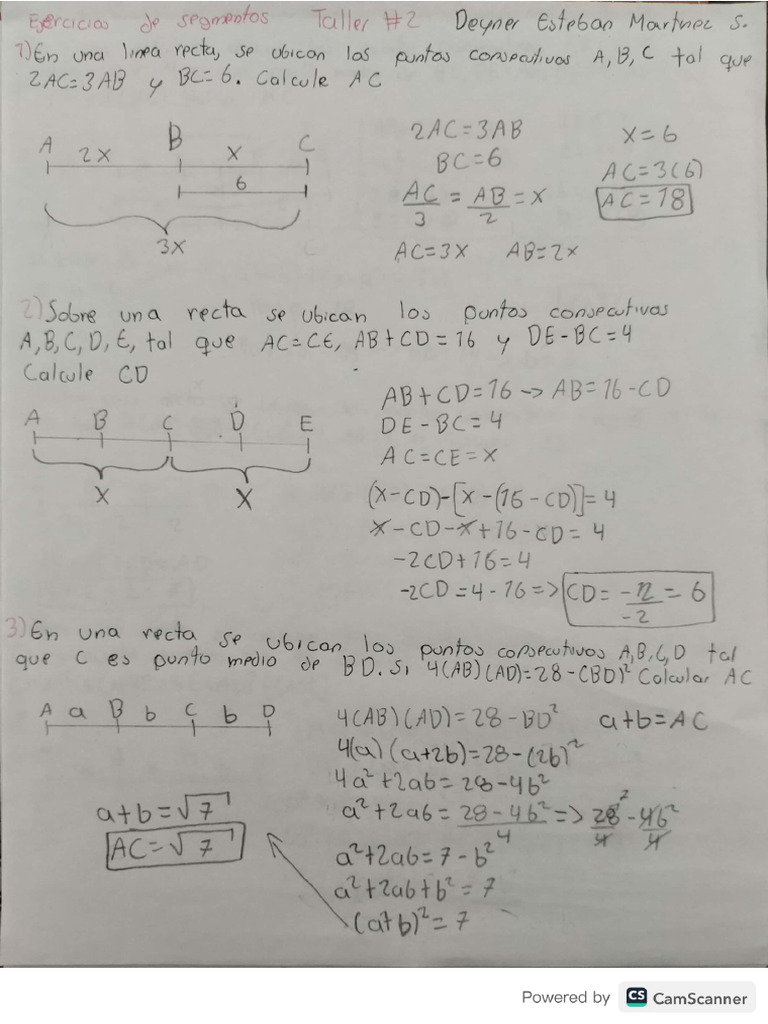 Ejercicios de segmentos Taller #2 Deyner Esteban Martinez S.
1) En una linea recta, se ubican los puntos consecutivos A, B, C tal que
2AC=3AB y BC=6. Calcule AC
A 2x B x C
6
3x
2AC=3AB
BC=6
AC/3 = AB/2 = x
AC=3x AB=2x
x=6
AC=3(6)
AC=18
2) Sobre una recta se ubican los puntos consecutivos
A, B, C, D, E, tal que AC=CE, AB+CD=16 y DE-BC=4
Calcule CD
A B C D E
x x
AB+CD=16 -> AB=16-CD
DE-BC=4
AC=CE=x
(x-CD)-[x-(16-CD)]=4
x-CD-x+16-CD=4
-2CD+16=4
-2CD=4-16=> CD= -12/-2 = 6
3) En una recta se ubican los puntos consecutivos A, B, C, D tal
que C es punto medio de BD. Si 4(AB)(AD)=28-(BD)² Calcular AC
A a B b C b D
4(AB)(AD)=28-BD² a+b=AC
4(a)(a+2b)=28-(2b)²
4a²+2ab=28-4b²
a²+2ab= 28-4b²/4 => 28/4 - 4b²/4
a²+2ab=7-b²
a²+2ab+b²=7
(a+b)²=7
a+b=√7
AC=√7
Powered by CS CamScanner